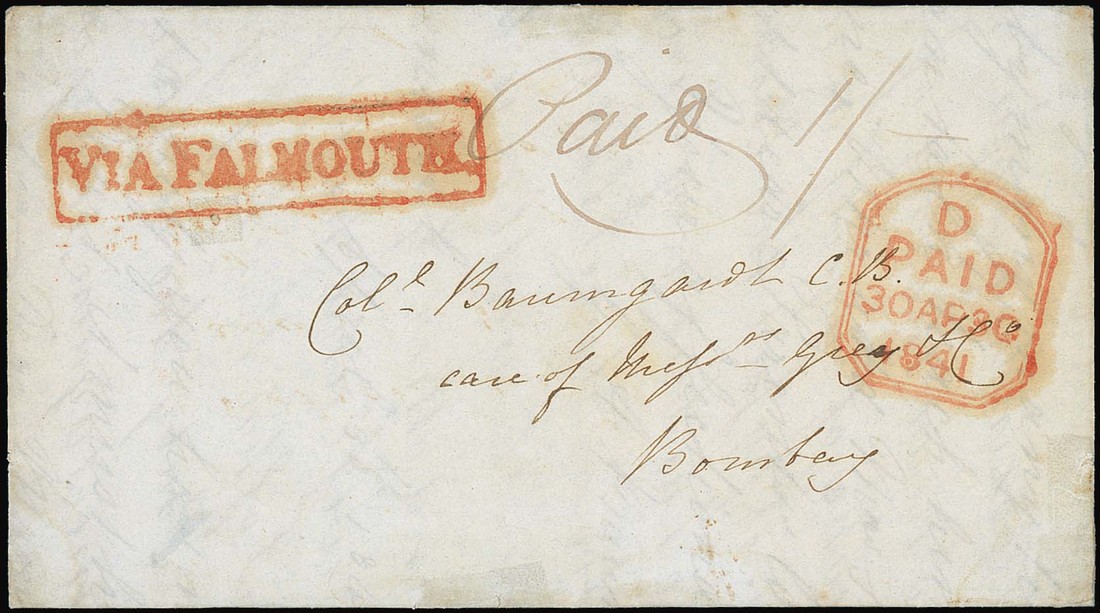 VIA FALMOUTH
Paid 1/-
D
PAID
30 AP 30
1841
Col.l Baumgardt C.B.
care of Messrs Grey & Co
Bombay